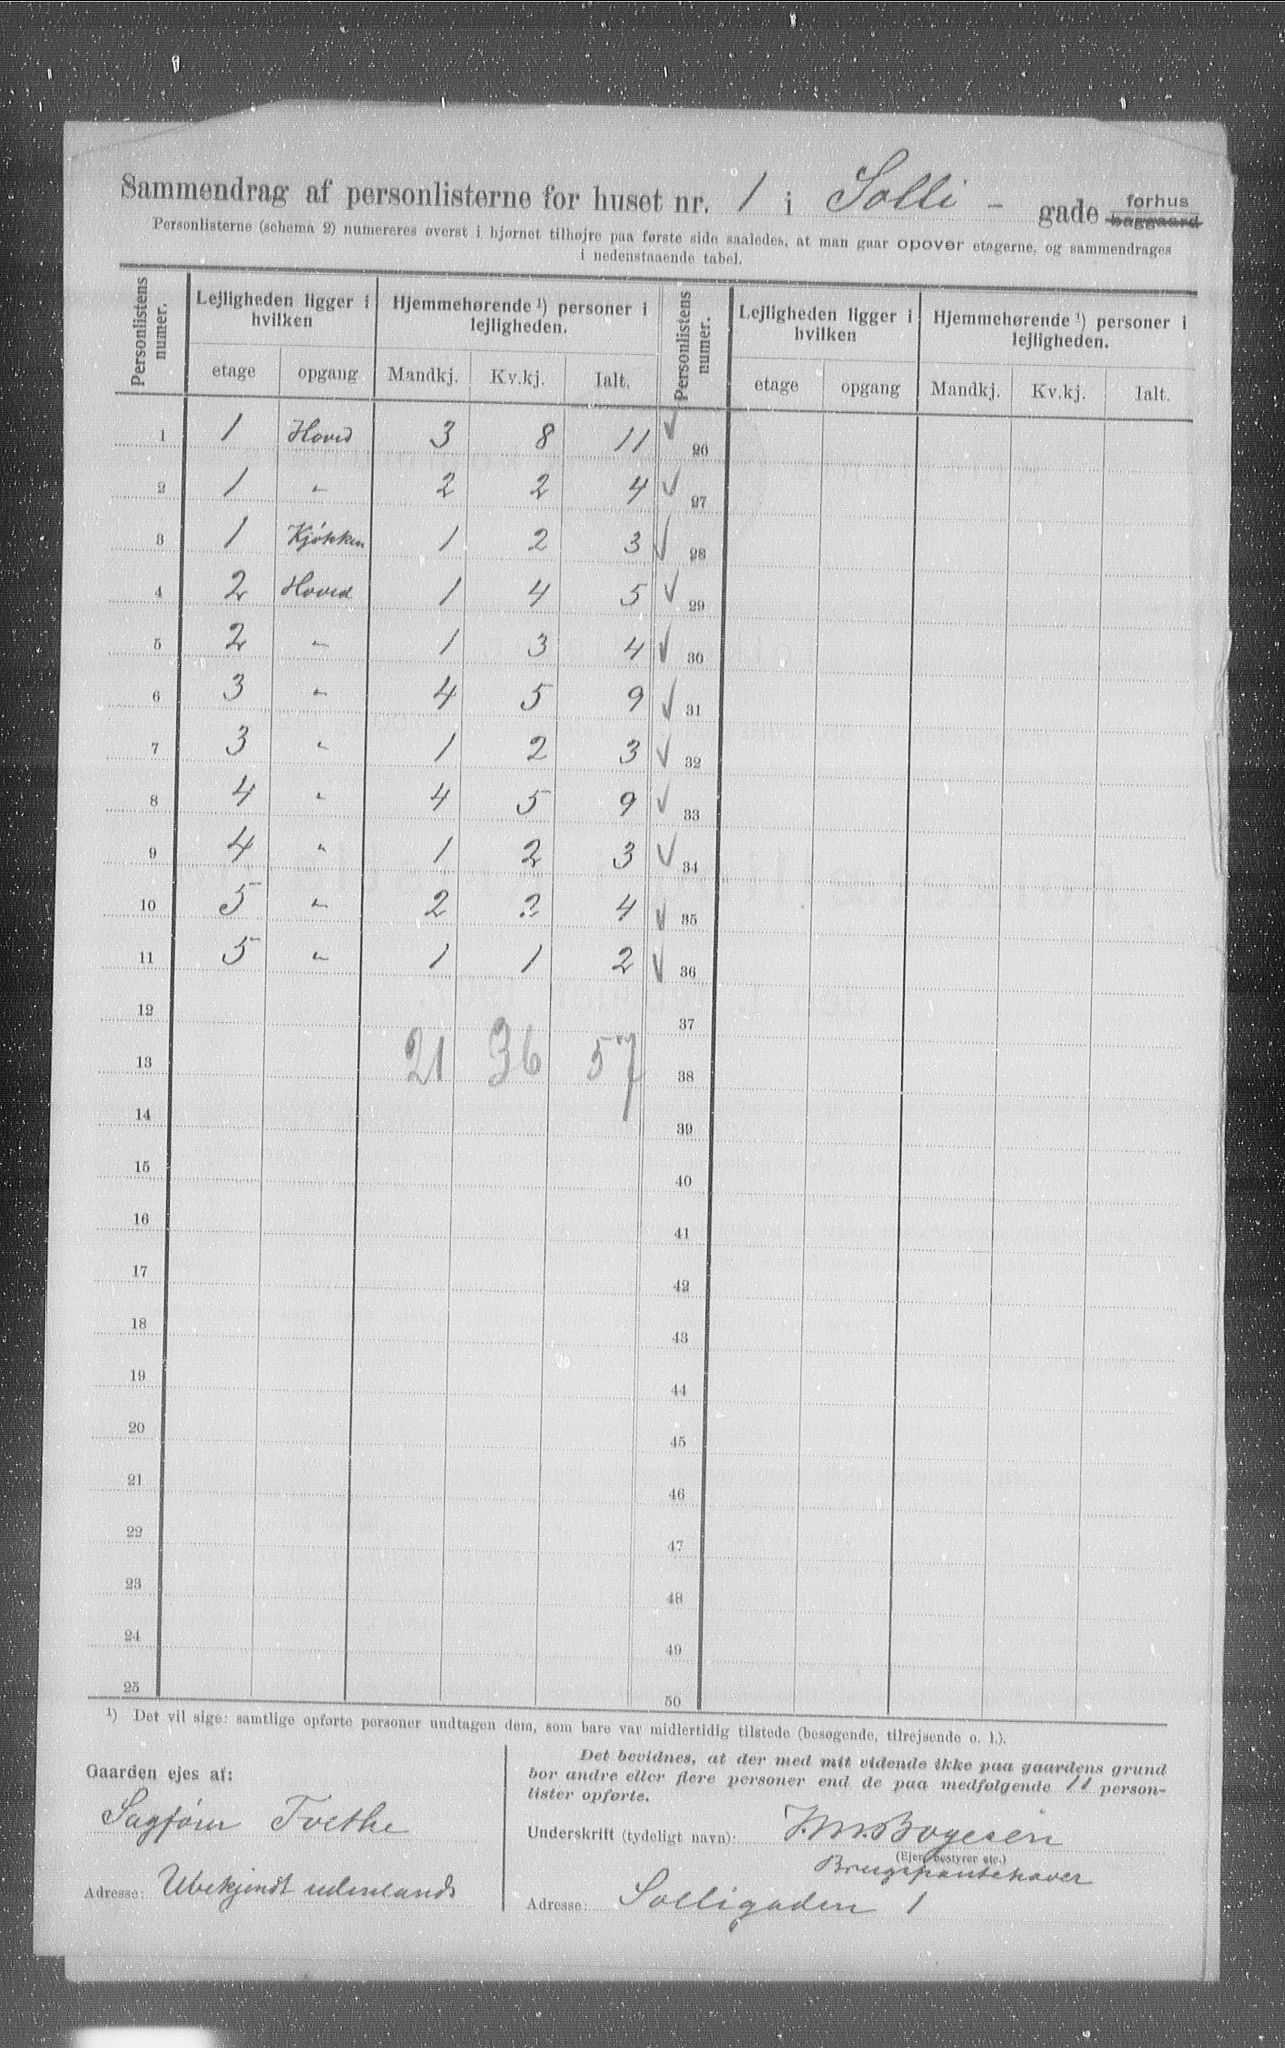 Sammendrag af personlisterne for huset nr. 1 i Solli - gade forhus baggaard
Personlisterne (schema 2) numereres øverst i hjørnet tilhøjre paa første side saaledes, at man gaar opover etagerne, og sammendrages
i nedenstaaende tabel.
Personlistens numer. Lejligheden ligger i hvilken Hjemmehørende ¹) personer i lejligheden. Personlistens numer. Lejligheden ligger i hvilken Hjemmehørende ¹) personer i lejligheden.
etage opgang Mandkj. Kv.kj. Ialt. etage opgang Mandkj. Kv.kj. Ialt.
1 1 Hoved 3 8 11 ✓ 26
2 1 " 2 2 4 ✓ 27
3 1 Kjøkken 1 2 3 ✓ 28
4 2 Hoved 1 4 5 ✓ 29
5 2 " 1 3 4 ✓ 30
6 3 " 4 5 9 ✓ 31
7 3 " 1 2 3 ✓ 32
8 4 " 4 5 9 ✓ 33
9 4 " 1 2 3 ✓ 34
10 5 " 2 2 4 ✓ 35
11 5 " 1 1 2 ✓ 36
12 37
13 21 36 57 38
14 39
15 40
16 41
17 42
18 43
19 44
20 45
21 46
22 47
23 48
24 49
25 50
¹) Det vil sige: samtlige opførte personer undtagen dem, som bare var midlertidig tilstede (besøgende, tilrejsende o. l.).
Gaarden ejes af:
Sagfører Tvethe
Adresse: Ubekjendt udenlands
Det bevidnes, at der med mit vidende ikke paa gaardens grund
bor andre eller flere personer end de paa medfølgende 11 person-
lister opførte.
Underskrift (tydeligt navn): J.M.Bøgesen
(Ejer, bestyrer etc.)
Brugspantehaver
Adresse: Solligaden 1